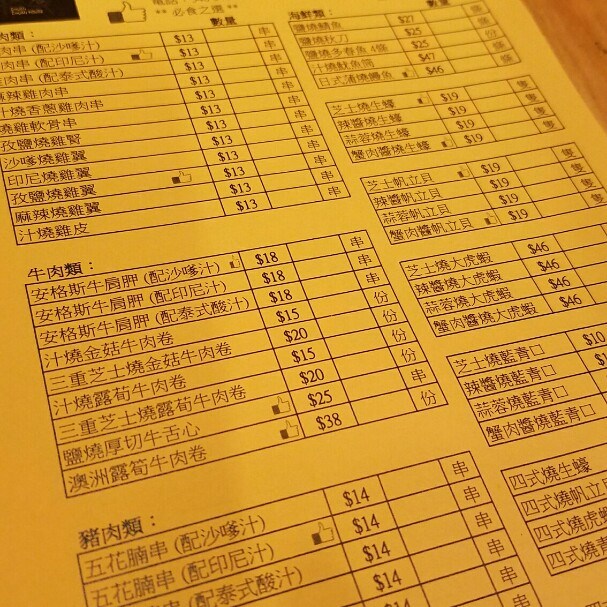 ** 必食之選 **
肉類：
數量
肉串 (配沙嗲汁) $13 串
肉串 (配印尼汁) $13 串
肉串 (配泰式酸汁) $13 串
麻辣雞肉串 $13 串
汁燒香蔥雞肉串 $13 串
燒雞軟骨串 $13 串
孜鹽燒雞腎 $13 串
沙嗲燒雞翼 $13 串
印尼燒雞翼 $13 串
孜鹽燒雞翼 $13 串
麻辣燒雞翼 $13 串
汁燒雞皮
牛肉類：
安格斯牛肩胛 (配沙嗲汁) $18 串
安格斯牛肩胛 (配印尼汁) $18 串
安格斯牛肩胛 (配泰式酸汁) $18 串
汁燒金菇牛肉卷 $15 份
三重芝士燒金菇牛肉卷 $20 份
汁燒露荀牛肉卷 $15 份
三重芝士燒露荀牛肉卷 $20 份
鹽燒厚切牛舌心 $25 串
澳洲露荀牛肉卷 $38 份
豬肉類：
五花腩串 (配沙嗲汁) $14 串
五花腩串 (配印尼汁) $14 串
(配泰式酸汁) $14 串
$14 串
海鮮類：
數量
鹽燒鯖魚 $27
鹽燒秋刀 $25
鹽燒多春魚 4條 $25
汁燒魷魚筒 $47
日式薄燒鱔魚 $46
芝士燒生蠔 $19 隻
辣醬燒生蠔 $19 隻
蒜蓉燒生蠔 $19 隻
蟹肉醬燒生蠔 $19 隻
芝士帆立貝 $19 隻
辣醬帆立貝 $19 隻
蒜蓉帆立貝 $19 隻
蟹肉醬帆立貝 $19 隻
芝士燒大虎蝦 $46
辣醬燒大虎蝦 $46
蒜蓉燒大虎蝦 $46
蟹肉醬燒大虎蝦 $46
芝士燒藍青口 $10
辣醬燒藍青口
蒜蓉燒藍青口
蟹肉醬燒藍青口
四式燒生蠔
四式燒帆立貝
四式燒虎蝦
四式燒青